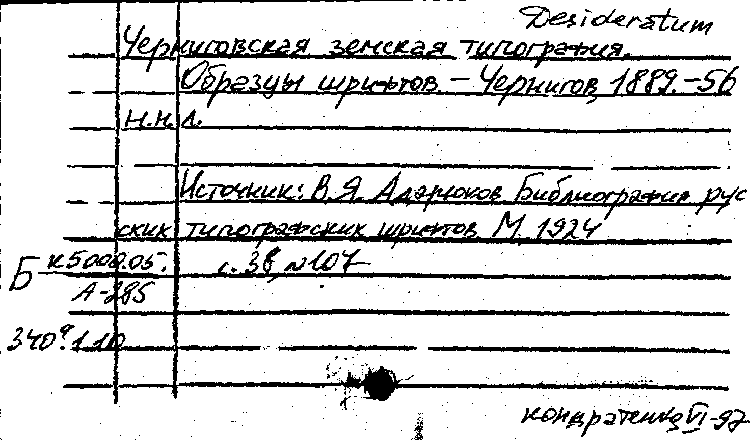 Desideratum
Черниговская земская типография.
Образцы шрифтов. – Чернигов, 1889. – 56
н.н. л.
Источник: В.Я. Адарюков Библиография рус
ских типографских шрифтов М. 1924
с. 38, №107
Б к5000.05.
А-285
Кондратенко VI-97